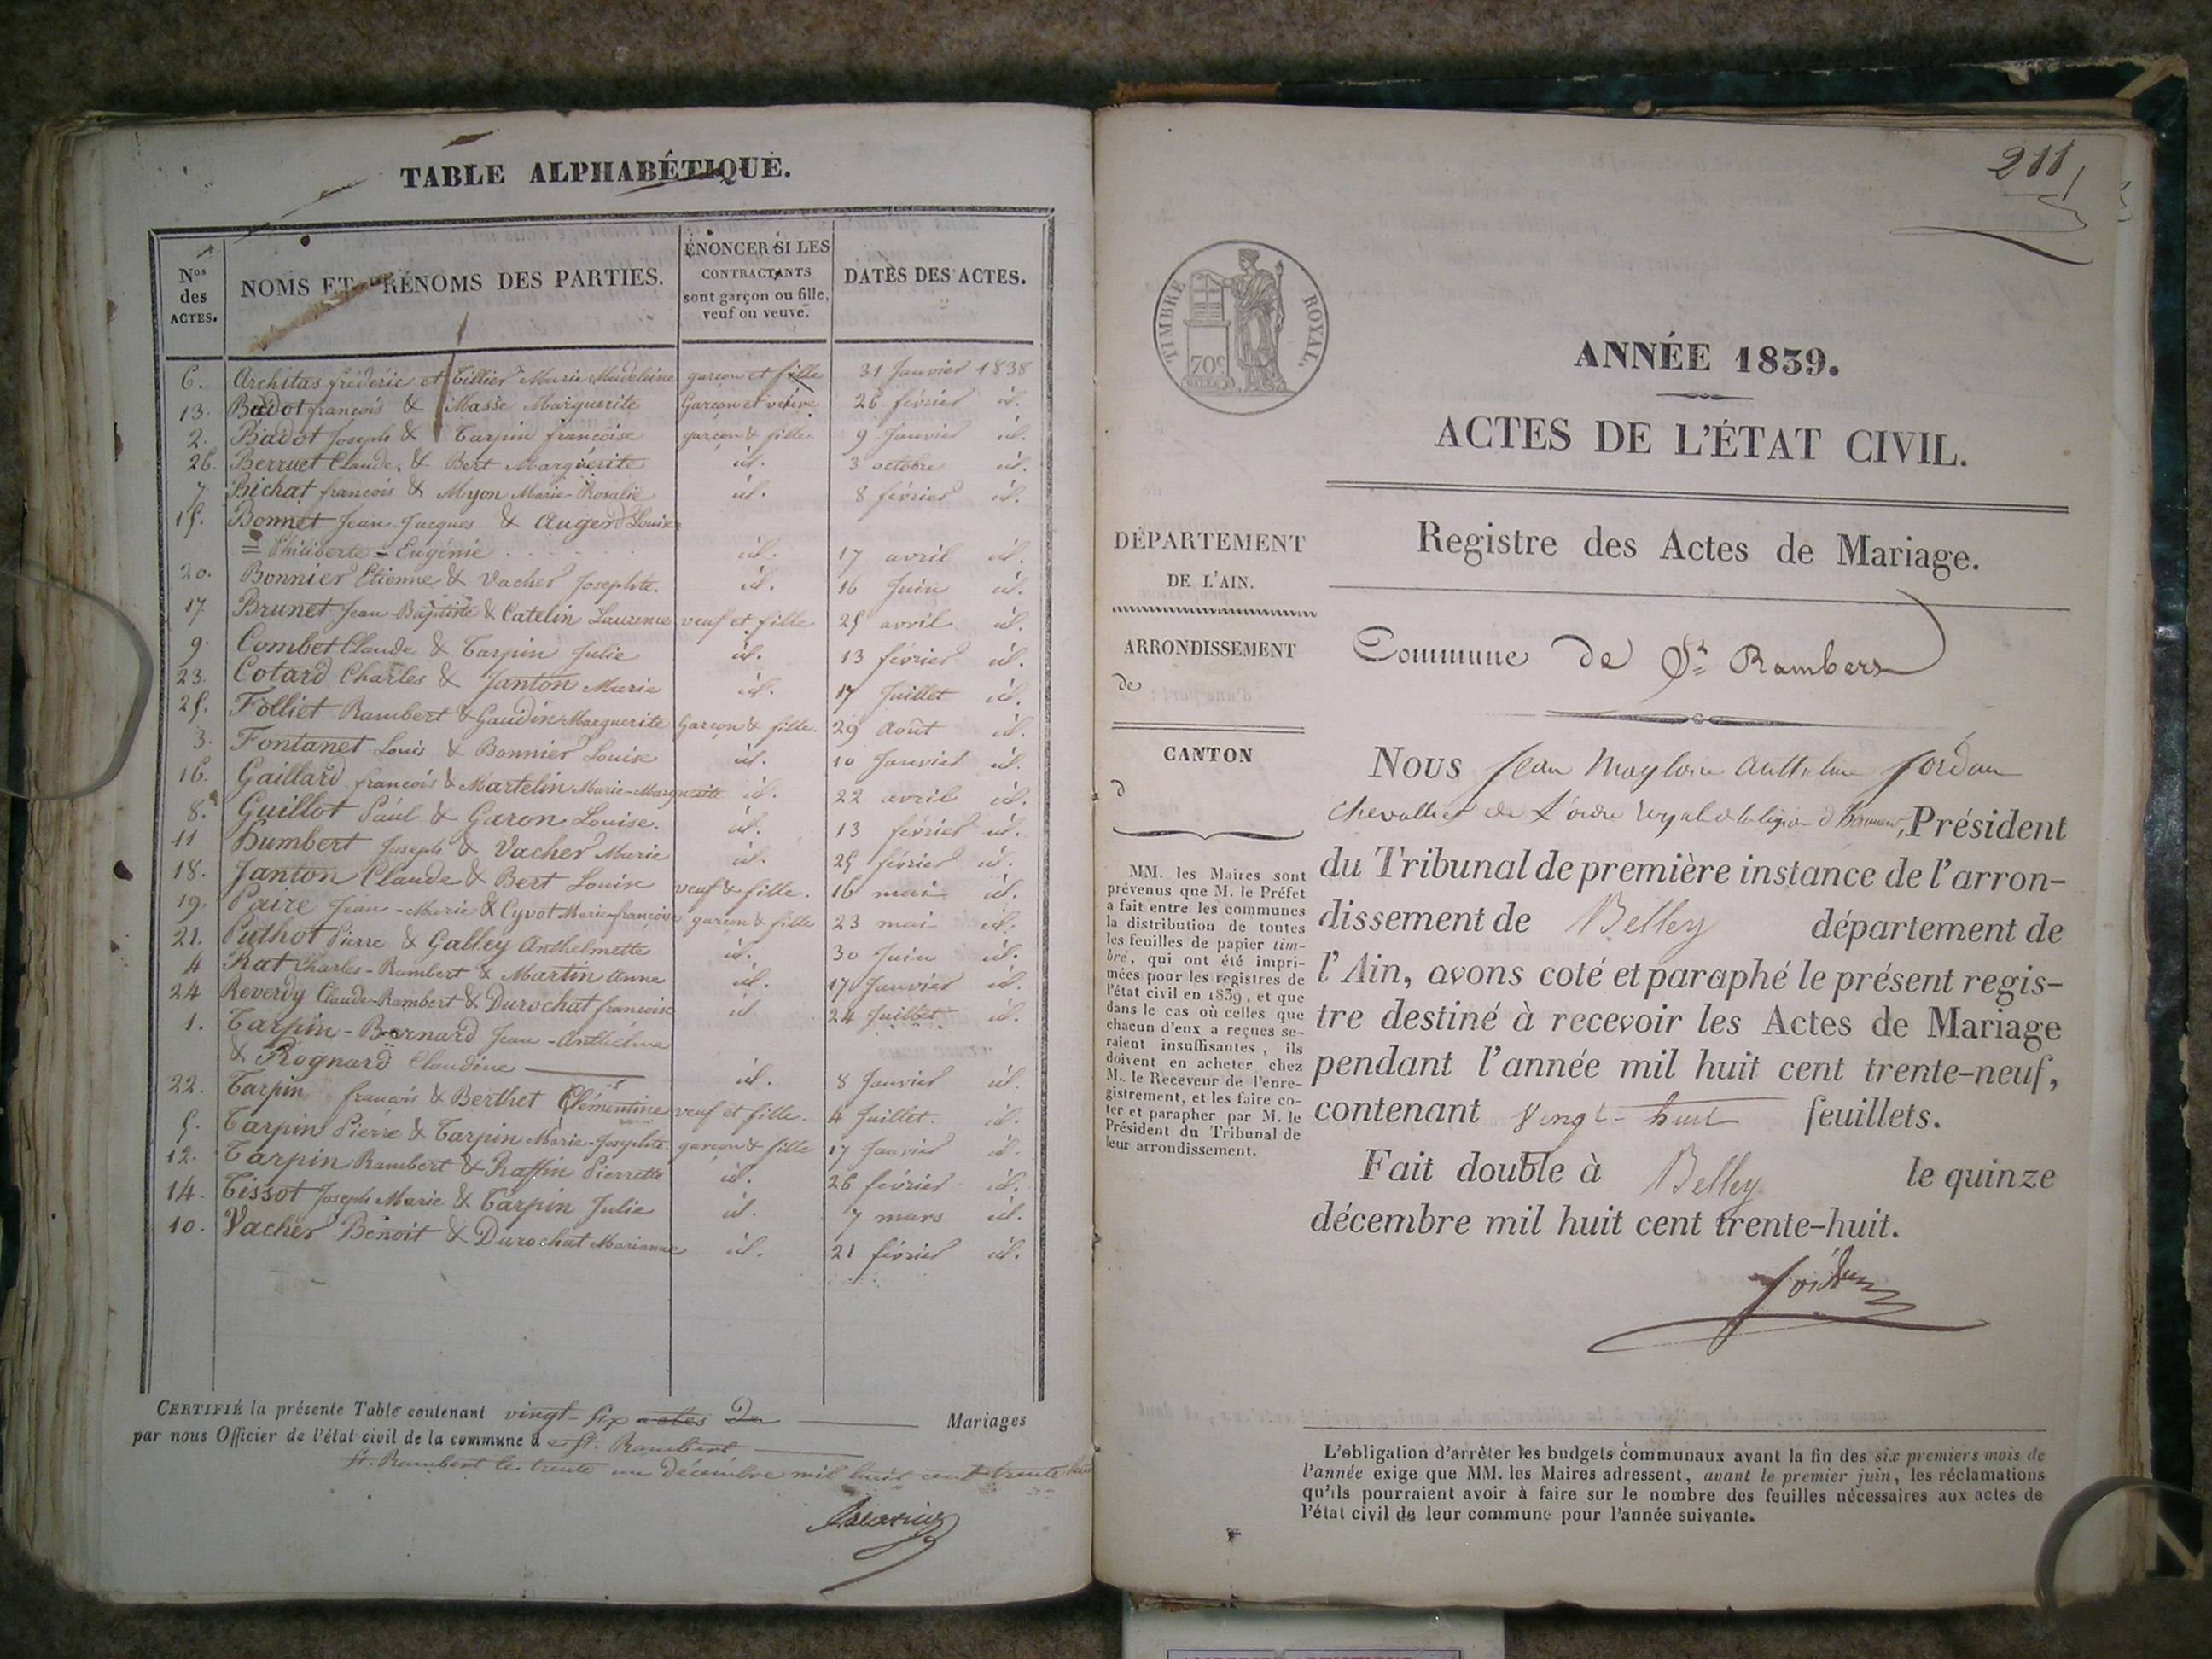 TABLE ALPHABÉTIQUE.
Nos des ACTES.
NOMS ET PRÉNOMS DES PARTIES.
ÉNONCER SI LES CONTRACTANTS sont garçon ou fille, veuf ou veuve.
DATES DES ACTES.
6. Architas fréderic et Tillier Marie Madeleine garçon et fille 31 Janvier 1838
13. Badot francois & Masse Marguerite Garçon et veuve 26 février id.
2. Badot Joseph & Tarpin francoise garçon & fille 9 Janvier id.
26. Berruet Claude, & Bert Marguerite id. 3 octobre id.
7 Bichat francois & Myon Marie Rosalie id. 8 février id.
15. Bonnet Jean Jacques & Auger Louise
= Philiberte = Eugénie id. 17 avril id.
20. Bonnier Etienne & Vacher Josephte. id. 16 Juin id.
17 Brunet Jean Baptiste & Catelin Laurence veuf et fille 25 avril id.
9. Combet Claude & Tarpin Julie id. 13 février id.
23. Cotard Charles & Janton Marie id. 17 Juillet id.
25. Folliet Rambert & Gaudin Marguerite Garçon & fille. 29 Août id.
3. Fontanet Louis & Bonnier Louise id. 10 Janvier id.
16. Gaillard francois & Martelin Marie-Marguerite id. 22 avril id.
8. Guillot Paul & Garon Louise. id. 13 février id.
11 Humbert Joseph & Vacher Marie id. 25 février id.
18. Janton Claude & Bert Louise veuf & fille. 16 mai id.
19. Paire Jean-Marie & Cyvot Marie-françoise garçon & fille 23 mai id.
21. Puthot Pierre & Galley Anthelmette id. 30 Juin id.
4 Rat Charles-Rambert & Martin Anne id. 17 Janvier id.
24 Reverdy Claude-Rambert & Durochat francoise id 24 Juillet id.
1. Tarpin-Bernard Jean-Anthelme
& Rognard Claudine id. 8 Janvier id.
22. Tarpin francois & Berthet Clémentine veuf et fille. 4 Juillet. id.
5. Tarpin Pierre & Tarpin Marie-Josephte garçon & fille 17 Janvier id.
12. Tarpin Rambert & Raffin Pierrette id. 26 février id.
14. Tissot Joseph Marie & Tarpin Julie id. 7 mars id.
10. Vacher Benoit & Durochat Marianne id. 21 février id.
CERTIFIÉ la présente Table contenant vingt-six actes de Mariages
par nous Officier de l'état civil de la commune de St. Rambert
St. Rambert le trente un décembre mil huit cent trente huit
211
TIMBRE ROYAL
70c
ANNÉE 1839.
ACTES DE L'ÉTAT CIVIL.
Registre des Actes de Mariage.
DÉPARTEMENT
DE L'AIN.
ARRONDISSEMENT
de
CANTON
d
MM. les Maires sont
prévenus que M. le Préfet
a fait entre les communes
la distribution de toutes
les feuilles de papier tim-
bré, qui ont été impri-
mées pour les registres de
l'état civil en 1839, et que
dans le cas où celles que
chacun d'eux a reçues se-
raient insuffisantes, ils
doivent en acheter chez
M. le Receveur de l'enre-
gistrement, et les faire co-
ter et parapher par M. le
Président du Tribunal de
leur arrondissement.
Commune de St Rambert
Nous Jean Magloire Anthelme Jordan
Chevallier de L'ordre royal de la légion d'honneur, Président
du Tribunal de première instance de l'arron-
dissement de Belley département de
l'Ain, avons coté et paraphé le présent regis-
tre destiné à recevoir les Actes de Mariage
pendant l'année mil huit cent trente-neuf,
contenant vingt-huit feuillets.
Fait double à Belley le quinze
décembre mil huit cent trente-huit.
Jordan
L'obligation d'arrêter les budgets communaux avant la fin des six premiers mois de
l'année exige que MM. les Maires adressent, avant le premier juin, les réclamations
qu'ils pourraient avoir à faire sur le nombre des feuilles nécessaires aux actes de
l'état civil de leur commune pour l'année suivante.